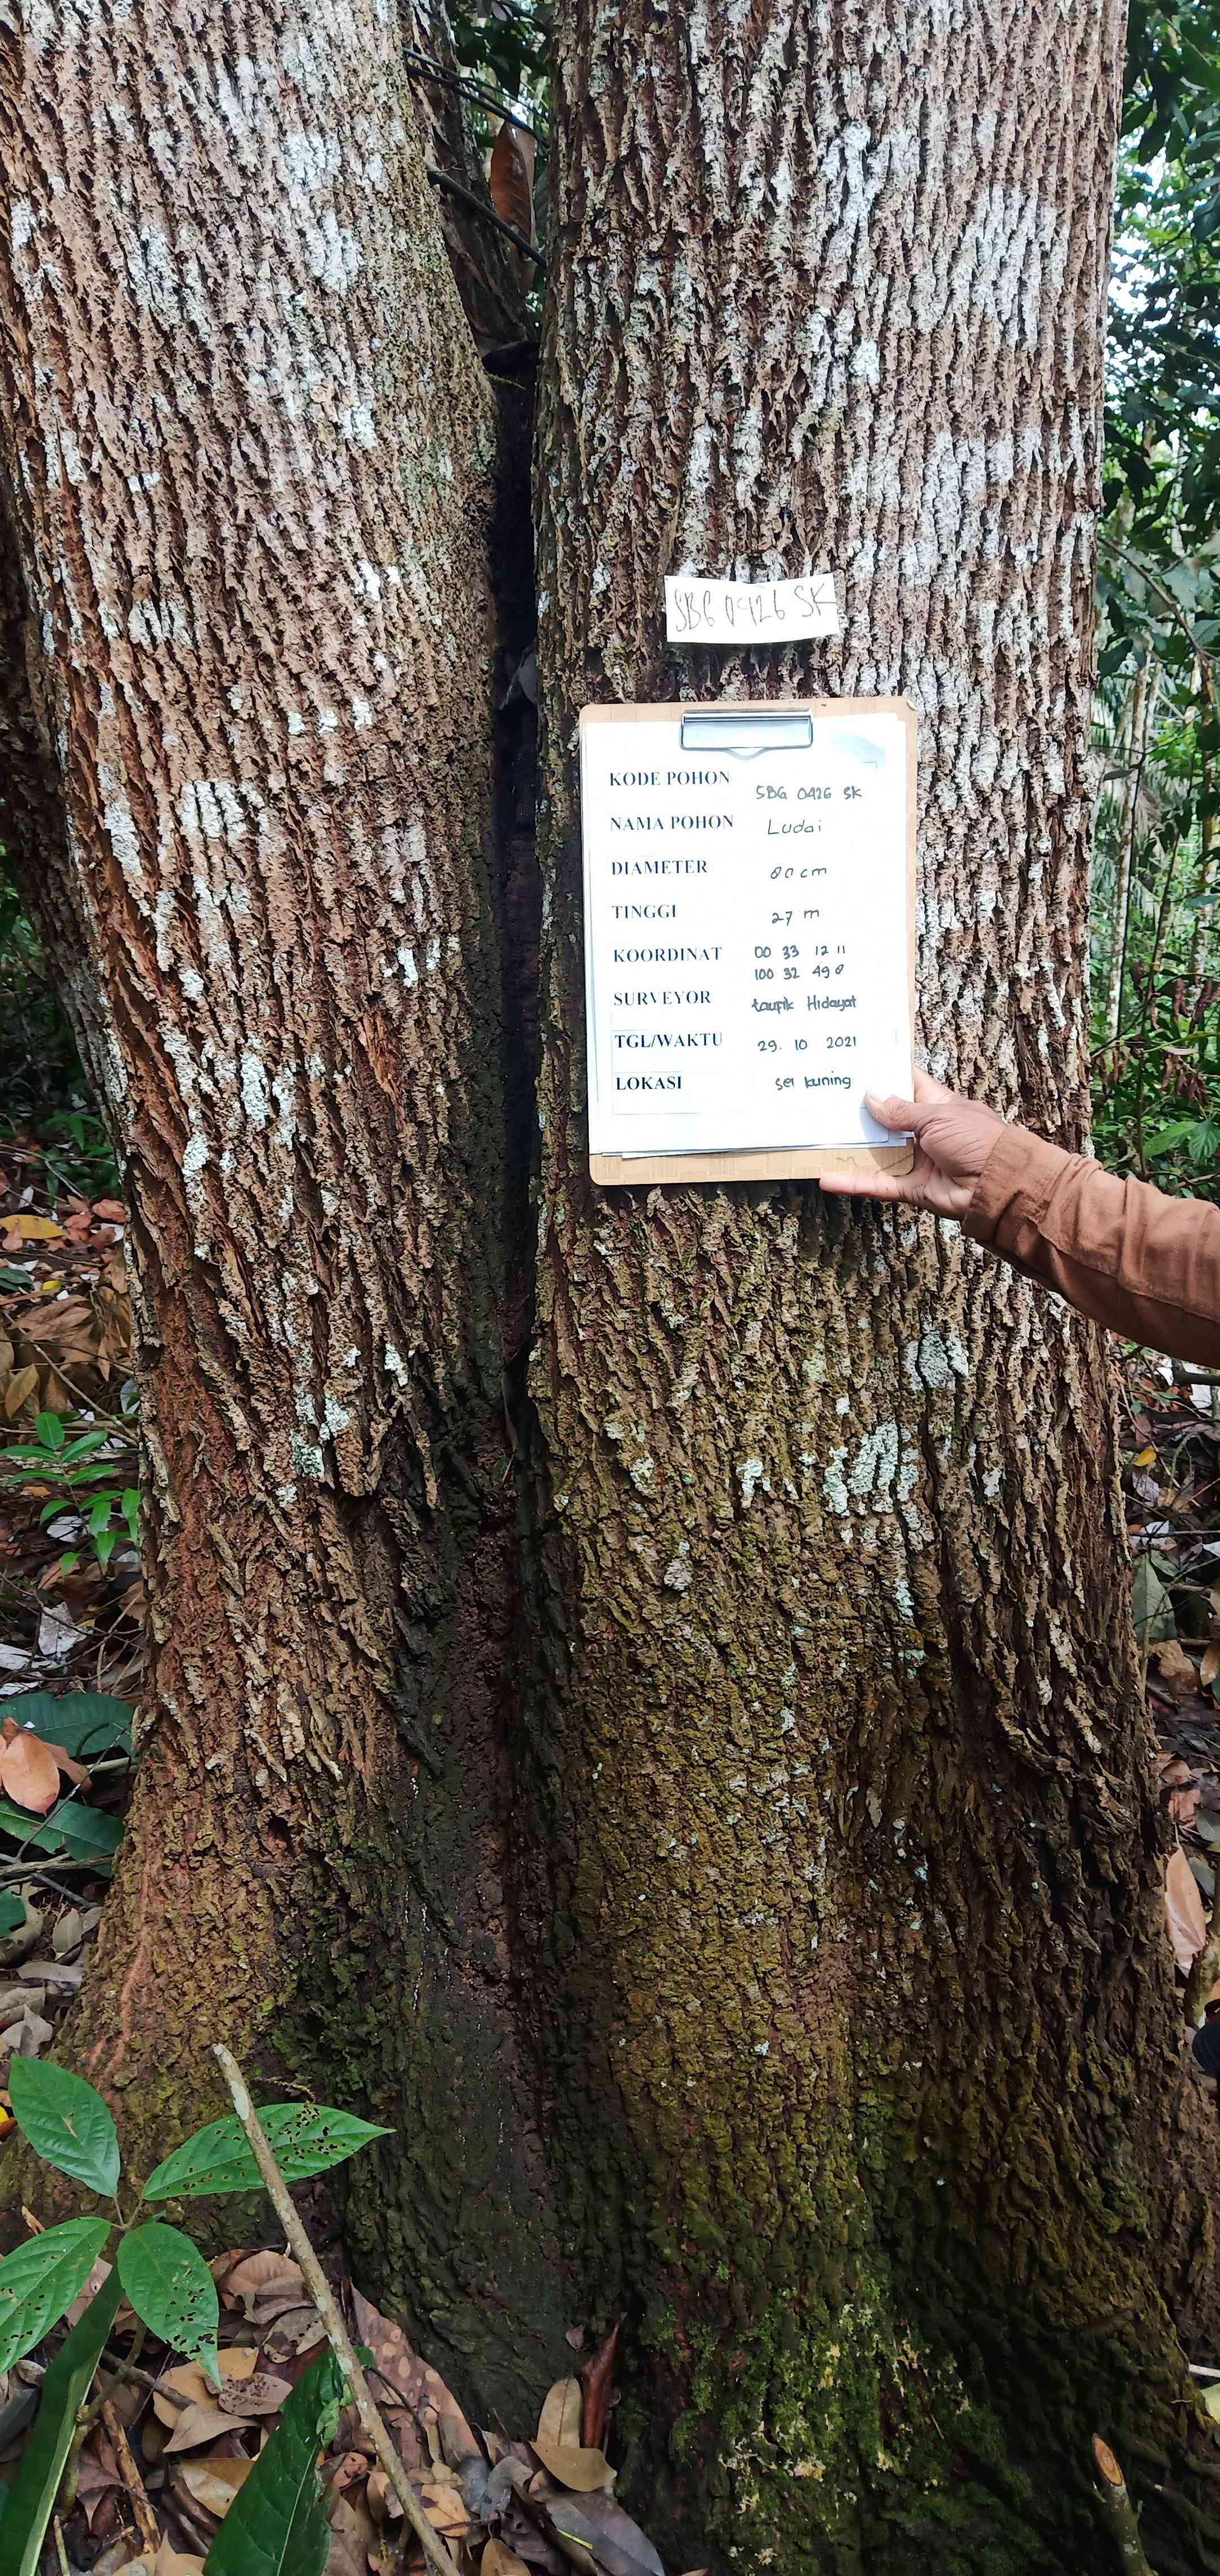 SBG 0426 SK
KODE POHON SBG 0426 SK
NAMA POHON Ludai
DIAMETER 80 cm
TINGGI 27 m
KOORDINAT 00 33 12 11
100 32 49 8
SURVEYOR taufik Hidayat
TGL/WAKTU 29. 10 2021
LOKASI sei kuning